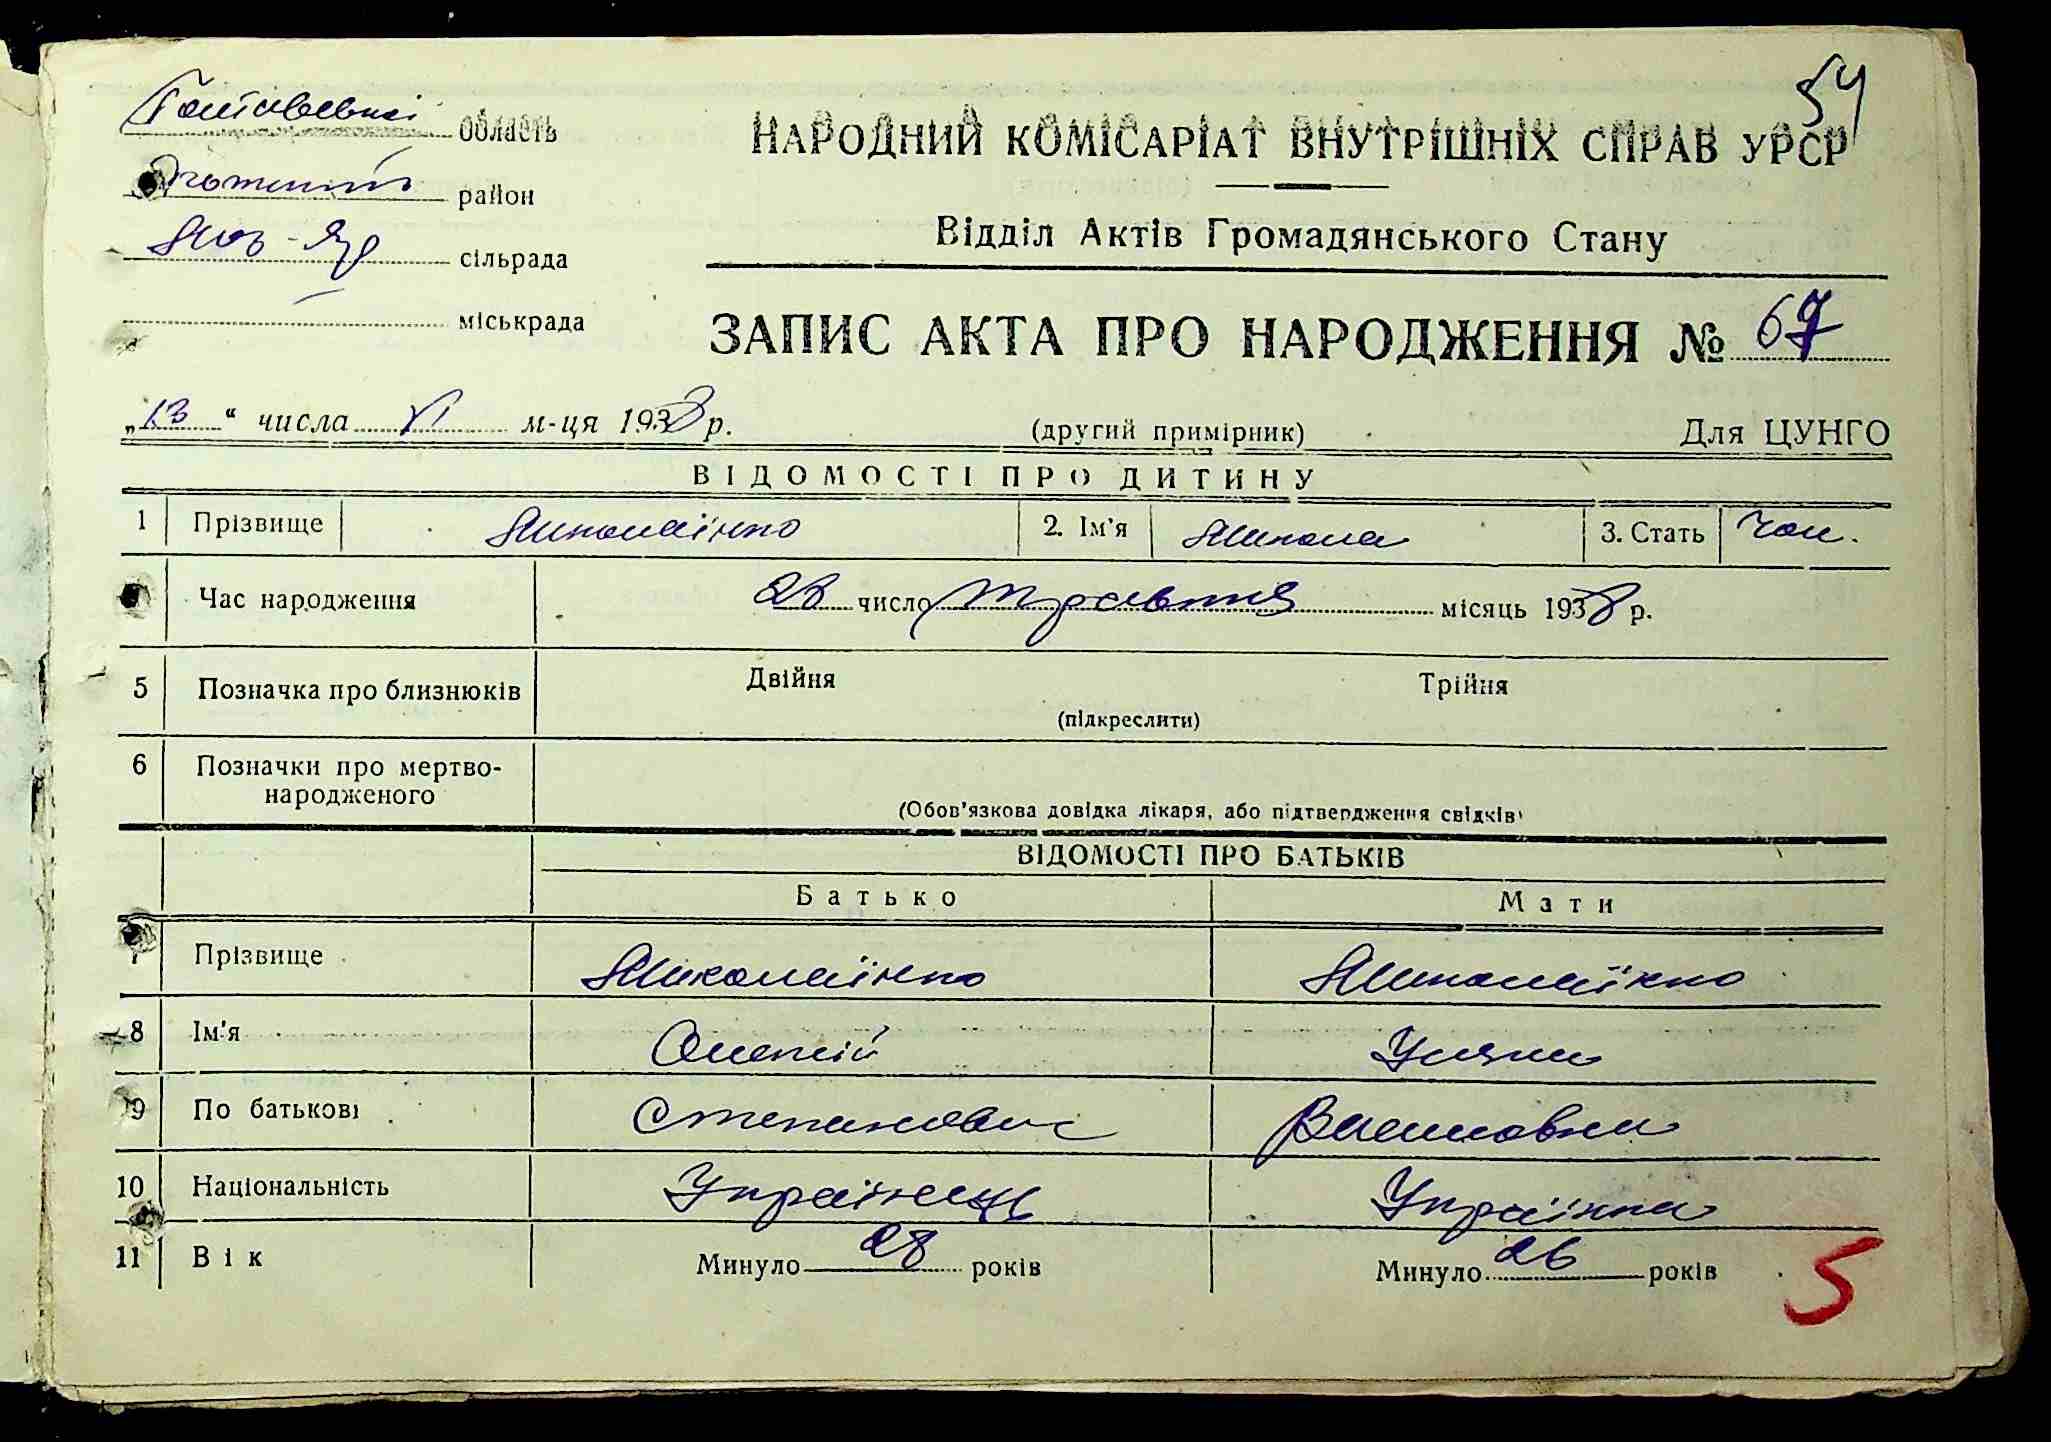 54
Полтавської область
район
Яр сільрада
міськрада
НАРОДНИЙ КОМІСАРІАТ ВНУТРІШНІХ СПРАВ УРСР
Відділ Актів Громадянського Стану
ЗАПИС АКТА ПРО НАРОДЖЕННЯ № 67
„13" числа VI м-ця 1938 р. (другий примірник) Для ЦУНГО
ВІДОМОСТІ ПРО ДИТИНУ
1 Прізвище Миколаїнко 2. Ім'я Микола 3. Стать Чол.
Час народження 28 число травня місяць 1938 р.
5 Позначка про близнюків Двійня Трійня
(підкреслити)
6 Позначки про мертво-
народженого
(Обов'язкова довідка лікаря, або підтвердження свідків)
ВІДОМОСТІ ПРО БАТЬКІВ
Батько Мати
7 Прізвище Миколаїнко Миколаїнко
8 Ім'я Олексій Уляна
9 По батькові Степанович Василовна
10 Національність Українець Українка
11 Вік Минуло 28 років Минуло 26 років
5